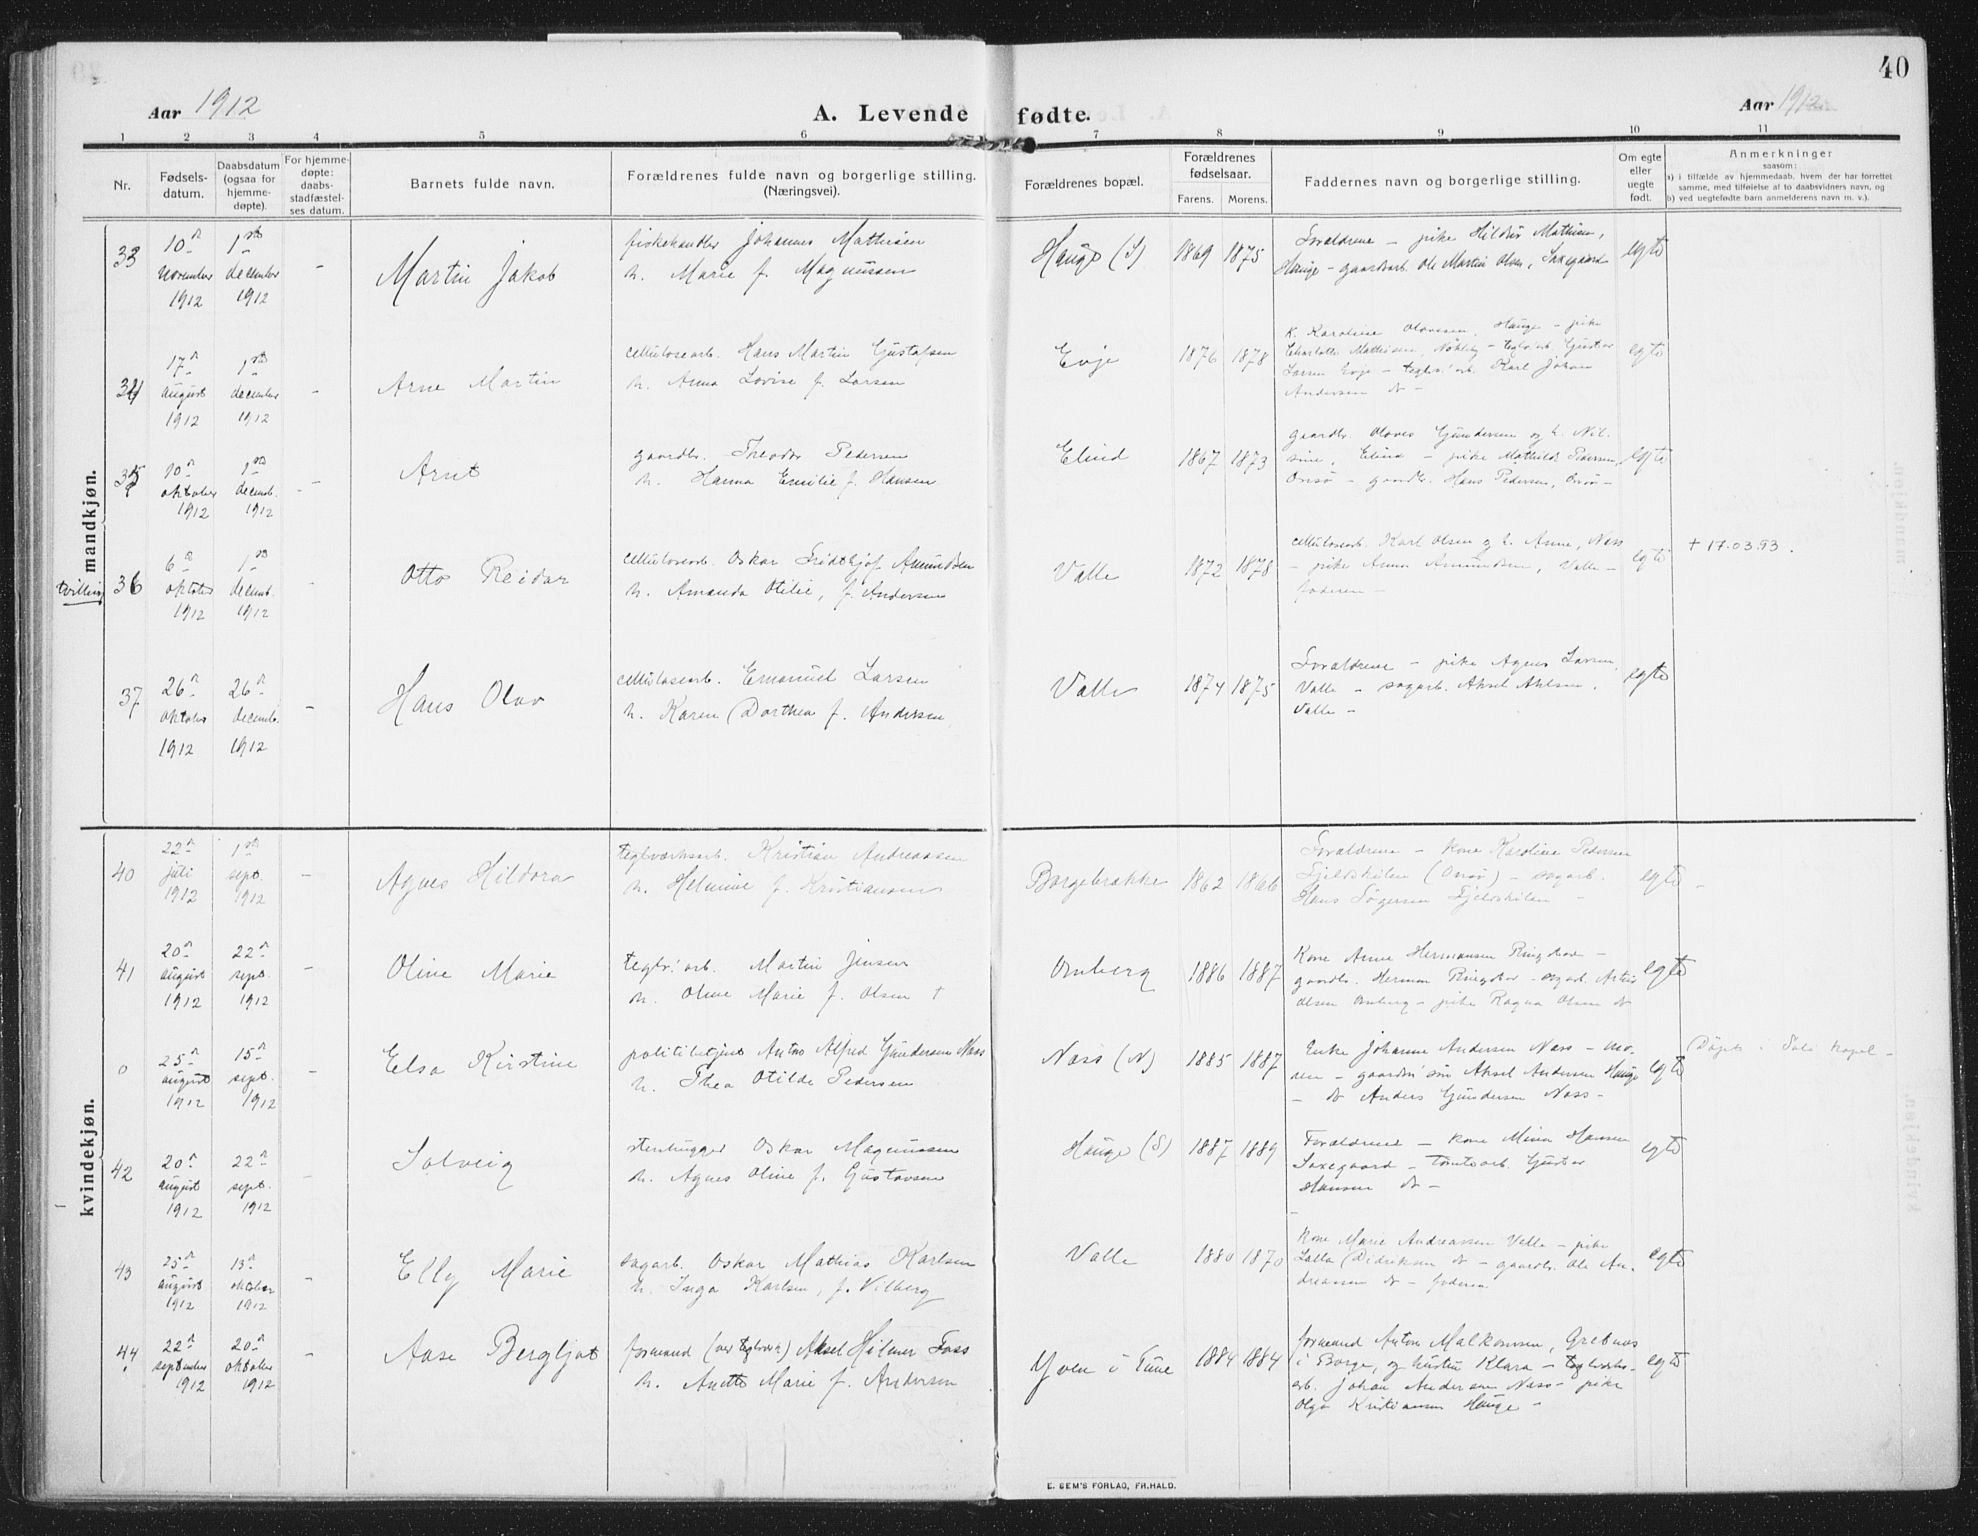 40
Aar 1912
A. Levende fødte.
Aar 1912
1 2 3 4 5 6 7 8 9 10 11
Nr.
Fødsels-
datum.
Daabsdatum
(ogsaa for
hjemme-
døpte).
For hjemme-
døpte:
daabs-
stadfæstel-
ses datum.
Barnets fulde navn.
Forældrenes fulde navn og borgerlige stilling.
(Næringsvei).
Forældrenes bopæl.
Forældrenes
fødselsaar.
Farens. Morens.
Faddernes navn og borgerlige stilling.
Om egte
eller
uegte
født.
Anmerkninger
saasom:
a) i tilfælde av hjemmedaab, hvem der har forrettet
samme, med tilføielse af to daabsvidners navn, og
b) ved uegtefødte barn anmelderens navn m. v.).
mandkjøn.
33
10de november 1912
1ste december 1912
-
Martin Jakob
fiskehandler Johannes Mathisen
h. Marie f. Magnussen
Hauge (S) 1869 1875
Forældrene - pike Hildur Mathisen,
Hauge - gaardarb. Ole Martin Olsen, Saxegaard
egte
34
17de august 1912
1ste december 1912
-
Arne Martin
cellulosearb. Hans Martin Gustafsen
h. Anna Lovise f. Larsen
Evje 1876 1878
K. Karoline Olavesen, Hauge - pike
Charlotte Mathisen, - teglv.arb. Gustav
Larsen Evje - teglv.arb. Karl Johan
Andersen do -
egte
35
10de oktober 1912
1ste decemb. 1912
-
Arnt
gaardbr. Theodor Pedersen
h. Hanna Emilie f. Hansen
Elind 1867 1873
gaardbr. Olaves Gundersen og h. Nil-
sine, Elind - pike Mathilde Pedersen,
Onsø - gaardbr. Hans Pedersen, Onsø -
egte
tvilling 36
6de oktober 1912
1ste decemb. 1912
-
Otto Reidar
cellulosearb. Oskar Fridthjof Amundsen
h. Amanda Otilie, f. Andersen
Valle 1872 1878
cellulosearb. Karl Olsen og h. Anne, Næss
- pike Anna Amundsen, Valle -
faderen -
egte
+ 17.03.93.
37
26de oktober 1912
26de decemb. 1912
-
Hans Olav
cellulosearb. Emanuel Larsen
h. Karen Dorthea f. Andersen
Valle 1874 1875
Forældrene - pike Agnes Larsen,
Valle - sagarb. Aksel Ahlsen,
Valle -
egte
kvindekjøn.
40
22de juli 1912
1ste sept. 1912
-
Agnes Hildora
teglverksarb. Kristian Andreassen
h. Helmine f. Kristiansen
Borgebrække 1862 1866
Forældrene - kone Karoline Pedersen
Fjeldskilen (Onsø) - sagarb.
Hans Jørgensen Fjeldskilen -
egte -
41
20de august 1912
22de sept. 1912
-
Oline Marie
teglv.arb. Martin Jensen
h. Oline Marie f. Olsen +
Omberg 1886 1887
Kone Anne Hermansen Ringstad -
gaardbr. Herman Ringstad - sagarb.
Olsen Omberg - pike Ragna Olsen do
egte
0
25de august 1912
15de sept. 1912
-
Elsa Kirstine
politibetjent Anton Alfred Gundersen Næss
h. Thea Otilde Pedersen
Næss (N) 1885 1887
Enke Johanne Andersen Næss - mo-
deren - gaardbr.søn Aksel Andersen Hauge
- do Anders Gundersen Næss -
egte
(Døpt i Soli kapel -
42
20de august 1912
22de sept. 1912
-
Solveig
stenhugger Oskar Magnussen
h. Agnes Oline f. Gustavsen
Hauge (S) 1887 1889
Forældrene - kone Mina Hansen
Saxegaard - tomtearb. Gustav
Hansen do -
egte
43
25de august 1912
13de oktober 1912
-
Elly Marie
sagarb. Oskar Mathias Karlsen
h. Inga Karlsen, f. Vilberg
Valle 1880 1870
Kone Marie Andreassen Valle - pike
Lalla Didriksen do - gaardbr. Ole An-
dreassen do - faderen
egte
44
22de september 1912
20de oktober 1912
-
Aase Bergljot
formand (ved teglverk) Aksel Hilmer Foss
h. Anette Marie f. Andersen
Yven i Tune 1884 1884
formand Anton Malkomsen, Grebnes
i Borge, og hustru Klara - teglverks-
arb. Johan Andersen Næss - pike
Olga Kristiansen Hauge -
egte
E. SEM'S FORLAG, FR.HALD.